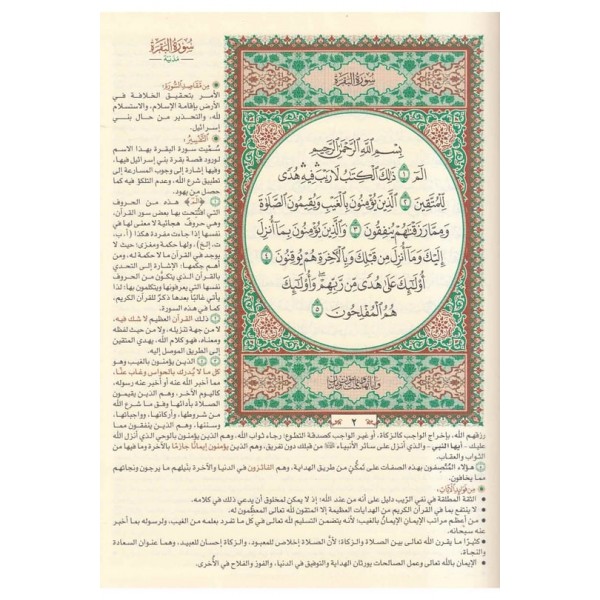 سُورَةُ البَقَرَةِ
مَدَنيّة
مِن مَّقَاصِدِ السُّورَةِ:
الأمر بتحقيق الخلافة في
الأرض بإقامة الإسلام، والاستسلام
لله، والتحذير من حال بني
إسرائيل.
التَّفْسِيرُ:
سُمِّيت سورة البقرة بهذا الاسم
لورود قصة بقرة بني إسرائيل فيها،
وفيها إشارة إلى وجوب المسارعة إلى
تطبيق شرع الله، وعدم التلكؤ فيه كما
حصل من يهود.
۝١ ﴿الٓمٓ﴾ هذه من الحروف
التي افتُتحت بها بعض سور القرآن،
وهي حروف هجائية لا معنى لها في
نفسها إذا جاءت مفردة هكذا (أ، ب،
ت، إلخ)، ولها حكمة ومغزى؛ حيث لا
يوجد في القرآن ما لا حكمة له، ومن
أهم حِكَمها: الإشارة إلى التحدي
بالقرآن الذي يتكوّن من الحروف
نفسها التي يعرفونها ويتكلمون بها؛ لذا
يأتي غالبًا بعدها ذكرٌ للقرآن الكريم،
كما في هذه السورة.
۝٢ ذلك القرآن العظيم لا شك فيه،
لا من جهة تنزيله، ولا من حيث لفظه
ومعناه، فهو كلام الله، يهدي المتقين
إلى الطريق الموصل إليه.
۝٣ الذين يؤمنون بالغيب وهو
كل ما لا يُدرك بالحواس وغاب عنّا،
مما أخبر الله عنه أو أخبر عنه رسوله،
كاليوم الآخر، وهم الذين يقيمون
الصلاة بأدائها وفق ما شرع الله
من شروطها، وأركانها، وواجباتها،
وسننها، وهم الذين ينفقون مما
سُورَةُ البَقَرَةِ
بِسْمِ ٱللَّهِ ٱلرَّحْمَٰنِ ٱلرَّحِيمِ
الٓمٓ ۝١ ذَٰلِكَ ٱلْكِتَٰبُ لَا رَيْبَۛ فِيهِۛ هُدًى
لِّلْمُتَّقِينَ ۝٢ ٱلَّذِينَ يُؤْمِنُونَ بِٱلْغَيْبِ وَيُقِيمُونَ ٱلصَّلَوٰةَ
وَمِمَّا رَزَقْنَٰهُمْ يُنفِقُونَ ۝٣ وَٱلَّذِينَ يُؤْمِنُونَ بِمَآ أُنزِلَ
إِلَيْكَ وَمَآ أُنزِلَ مِن قَبْلِكَ وَبِٱلْءَاخِرَةِ هُمْ يُوقِنُونَ ۝٤
أُو۟لَٰٓئِكَ عَلَىٰ هُدًى مِّن رَّبِّهِمْۖ وَأُو۟لَٰٓئِكَ
هُمُ ٱلْمُفْلِحُونَ ۝٥
٢
رزقهم الله، بإخراج الواجب كالزكاة، أو غير الواجب كصدقة التطوع؛ رجاء ثواب الله، وهم الذين يؤمنون بالوحي الذي أنزل الله
عليك - أيها النبي - والذي أنزل على سائر الأنبياء ﷺ من قبلك دون تفريق، وهم الذين يؤمنون إيمانًا جازمًا بالآخرة وما فيها من
الثواب والعقاب.
۝٥ هؤلاء المُتَّصِفون بهذه الصفات على تمكُّن من طريق الهداية، وهم الفائزون في الدنيا والآخرة بنَيلهم ما يرجون ونجاتهم
مما يخافون.
مِن فَوَائِدِ الآيَاتِ:
• الثقة المطلقة في نفي الرَّيب دليل على أنه من عند الله؛ إذ لا يمكن لمخلوق أن يدعي ذلك في كلامه.
• لا ينتفع بما في القرآن الكريم من الهدايات العظيمة إلا المتقون لله تعالى المعظِّمون له.
• من أعظم مراتب الإيمانِ الإيمانُ بالغيب؛ لأنه يتضمن التسليم لله تعالى في كل ما تفرد بعلمه من الغيب، ولرسوله بما أخبر عنه
سبحانه.
• كثيرًا ما يقرن الله تعالى بين الصلاة والزكاة؛ لأنَّ الصلاة إخلاص للمعبود، والزكاة إحسان للعبيد، وهما عنوان السعادة
والنجاة.
• الإيمان بالله تعالى وعمل الصالحات يورثان الهداية والتوفيق في الدنيا، والفوز والفلاح في الأُخرى.